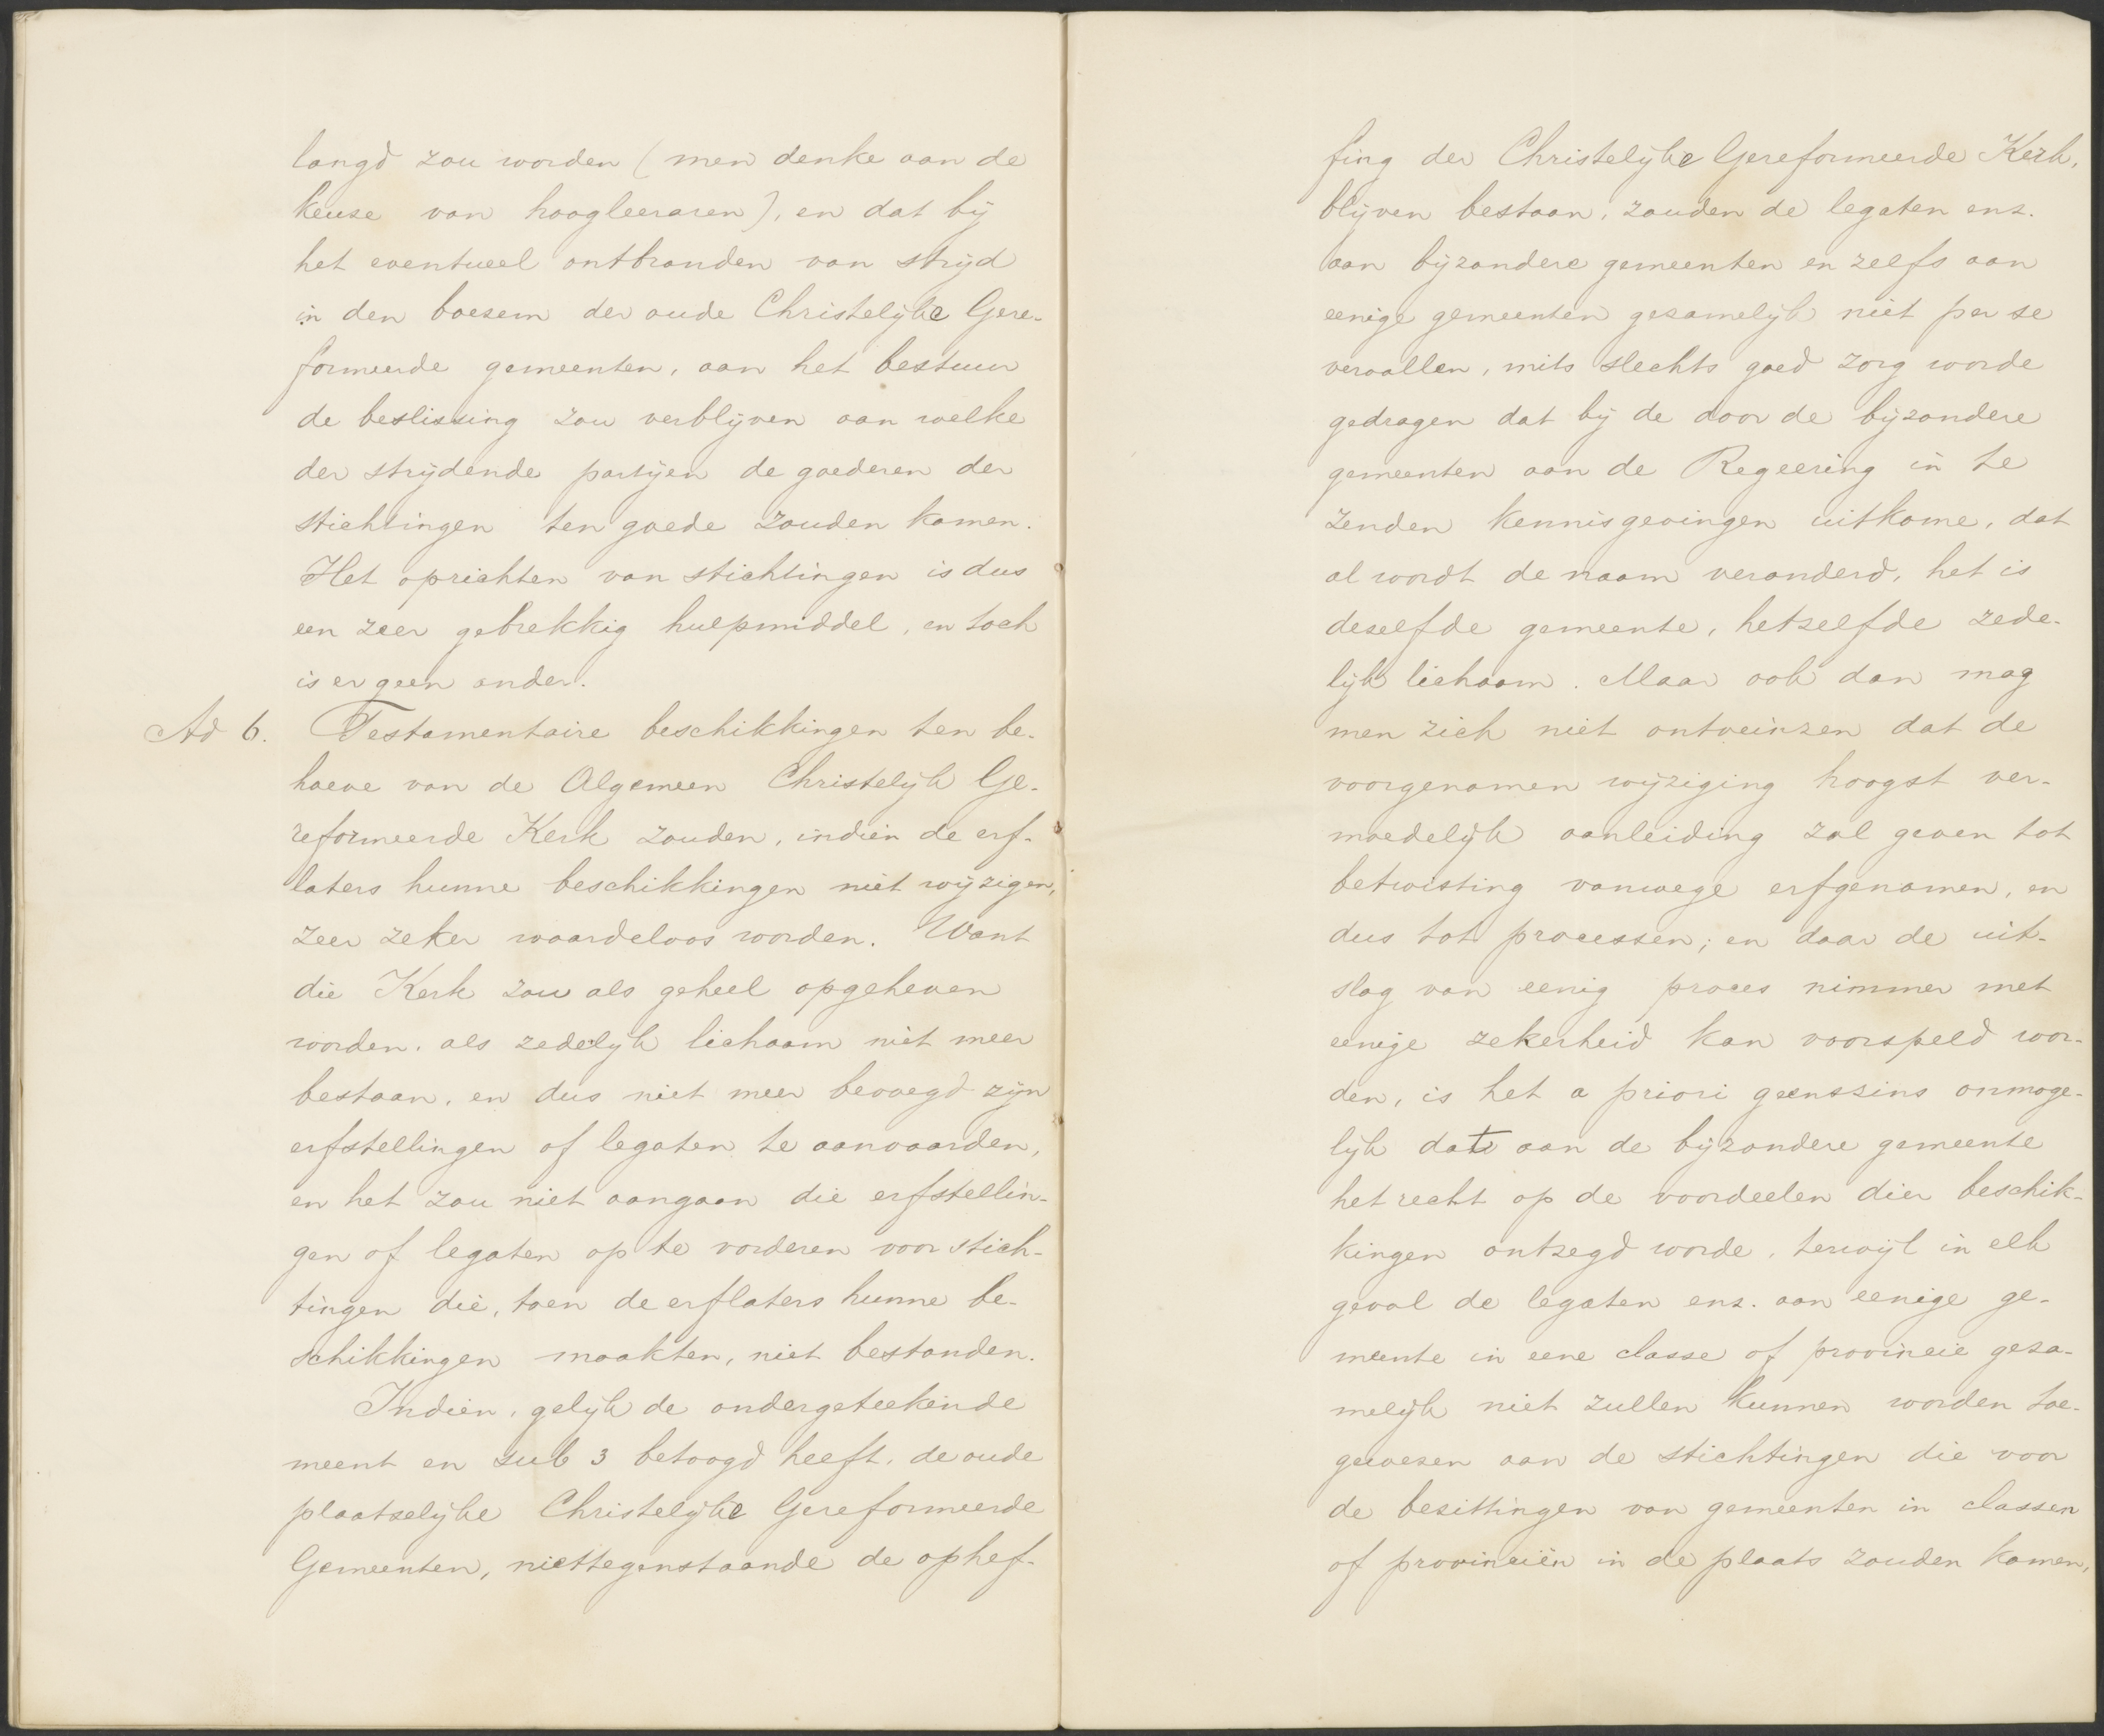 langd zou worden (men denke aan de
keuze van hoogleeraren), en dat bij
het eventueel ontbranden van strijd
in den boezem der oude Christelijke Gere-
formeerde gemeenten, aan het bestuur
de beslissing zou verblijven aan welke
der strijdende partijen de goederen der
stichtingen ten goede zouden komen.
Het oprichten van stichtingen is dus
een zeer gebrekkig hulpmiddel, en toch
is er geen ander.
Ad 6. Testamentaire beschikkingen ten be-
hoeve van de Algemeen Christelijk Ge-
reformeerde Kerk zouden, indien de erf-
laters hunne beschikkingen niet wijzigen,
zeer zeker waardeloos worden. Want
die Kerk zou als geheel opgeheven
worden, als zedelijk lichaam niet meer
bestaan, en dus niet meer bevoegd zijn
erfstellingen of legaten te aanvaarden,
en het zou niet aangaan die erfstellin-
gen of legaten op te vorderen voor stich-
tingen die, toen de erflaters hunne be-
schikkingen maakten, niet bestonden.
Indien, gelijk de ondergeteekende
meent en sub 3 betoogd heeft, de oude
plaatselijke Christelijke Gereformeerde
Gemeenten, niettegenstaande de ophef-
fing der Christelijke Gereformeerde Kerk,
blijven bestaan, zouden de legaten enz.
aan bijzondere gemeenten en zelfs aan
eenige gemeenten gezamelijk niet per se
vervallen, mits slechts goed zorg worde
gedragen dat bij de door de bijzondere
gemeenten aan de Regeering in te
zenden kennisgevingen uitkome, dat
al wordt de naam veranderd, het is
dezelfde gemeente, hetzelfde zede-
lijk lichaam. Maar ook dan mag
men zich niet ontveinzen dat de
voorgenomen wijziging hoogst ver-
moedelijk aanleiding zal geven tot
betwisting vanwege erfgenamen, en
dus tot processen; en daar de uit-
slag van eenig proces nimmer met
eenige zekerheid kan voorspeld wor-
den, is het a priori geenszins onmoge-
lijk dat aan de bijzondere gemeente
het recht op de voordeelen dier beschik-
kingen ontzegd worde, terwijl in elk
geval de legaten enz. aan eenige ge-
meente in eene classe of provincie geza-
melijk niet zullen kunnen worden toe-
gewezen aan de stichtingen die voor
de bezittingen van gemeenten in classen
of provinciën in de plaats zouden komen,